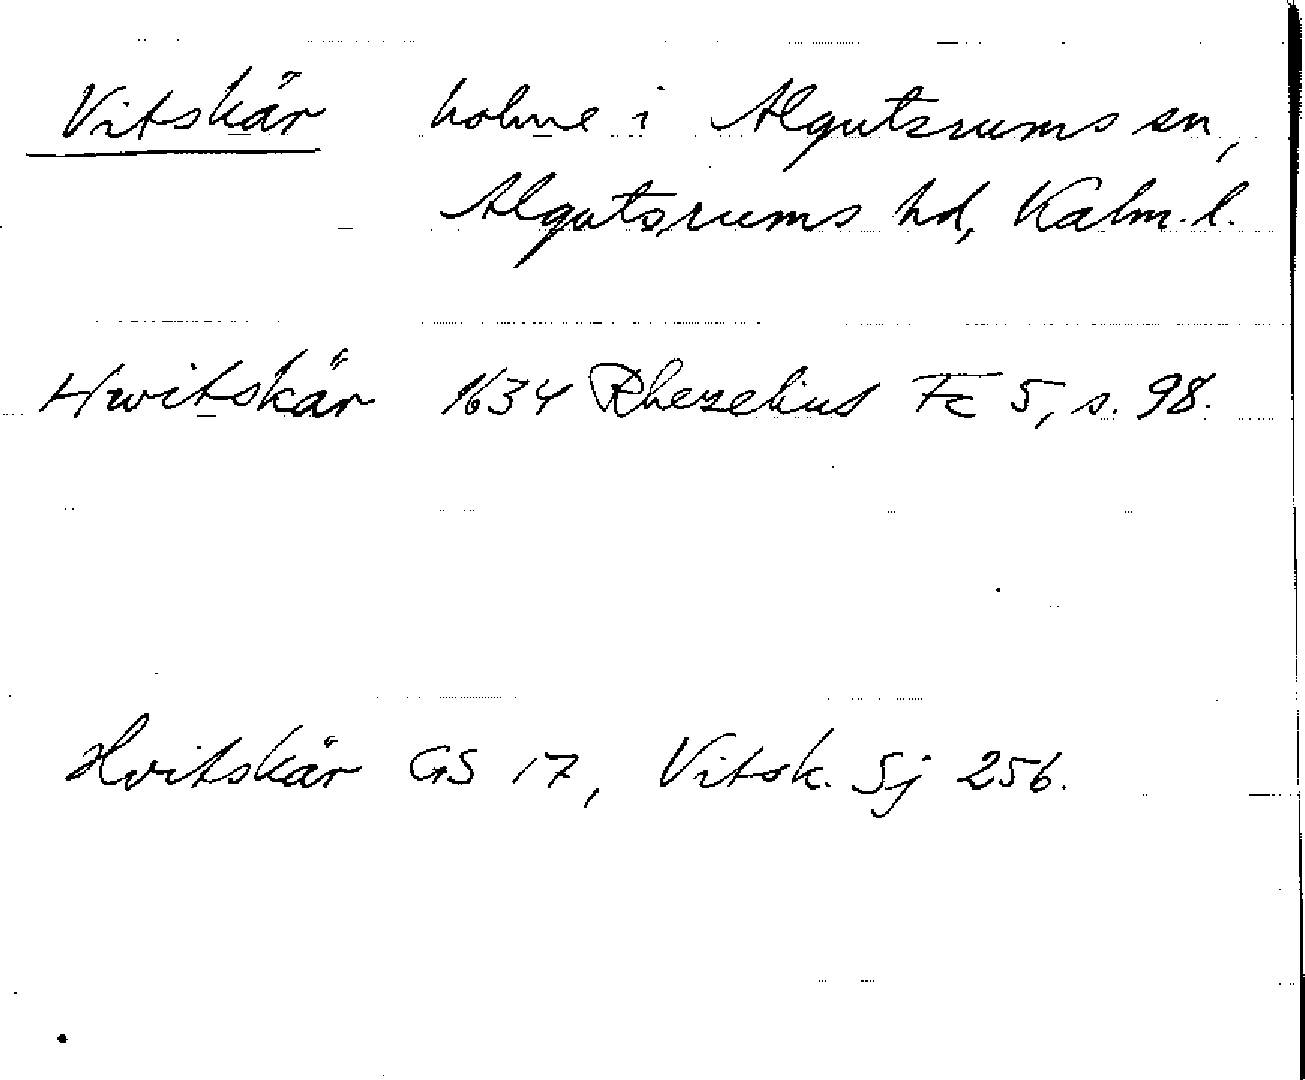 Vitskär holme i Algutsrums sn,
Algutsrums hd, Kalm. l.
Hwitskär 1634 Rhezelius Fc 5, s. 98.
Hvitskär GS 17, Vitsk. Sj 256.